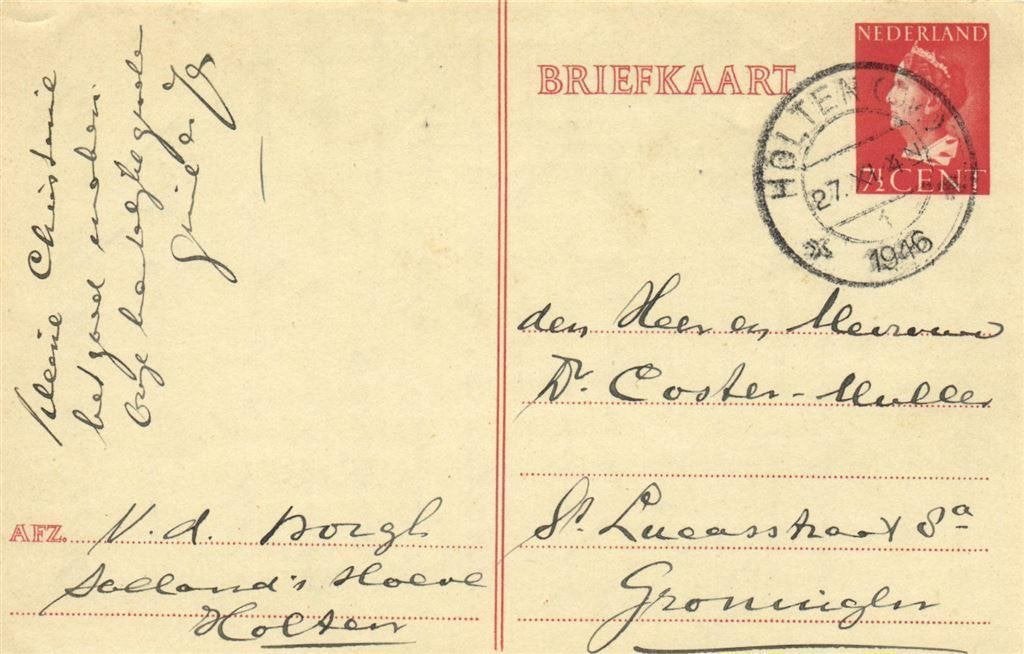 kleine Christanie
het goed maken.
Onze hartelijke groete
BRIEFKAART
NEDERLAND
7½ CENT
HOLTEN (OV.)
27.XII.4N
1
1946
den Heer en Mevrouw
Dr. Coster-Muller
St. Lucasstraat 8a
Groningen
AFZ. V. d. Borgh
Salland's Hoeve
Holten